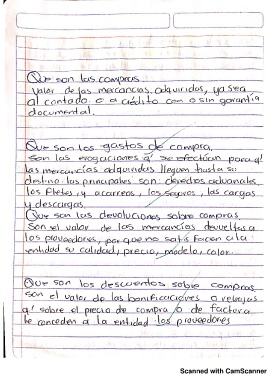 Que son las compras.
Valor de las mercancias adquiridas, ya sea
al contado o a crédito con o sin garantía
documental.
Que son los gastos de compra.
Son las erogaciones q' se efectúan para q'
las mercancías adquiridas lleguen hasta su
destino las principales son: derechos aduanales,
los fletes y acarreos, los seguros, las cargas
y descargas.
Que son las devoluciones sobre compras.
Son el valor de las mercancías devueltas a
los proveedores, por que no satisfacen a la
entidad su calidad, precio, modelo, color.
Que son los descuentos sobre compras
son el valor de las bonificaciones o rebajas
q' sobre el precio de compra o de factura
le conceden a la entidad los proveedores
Scanned with CamScanner